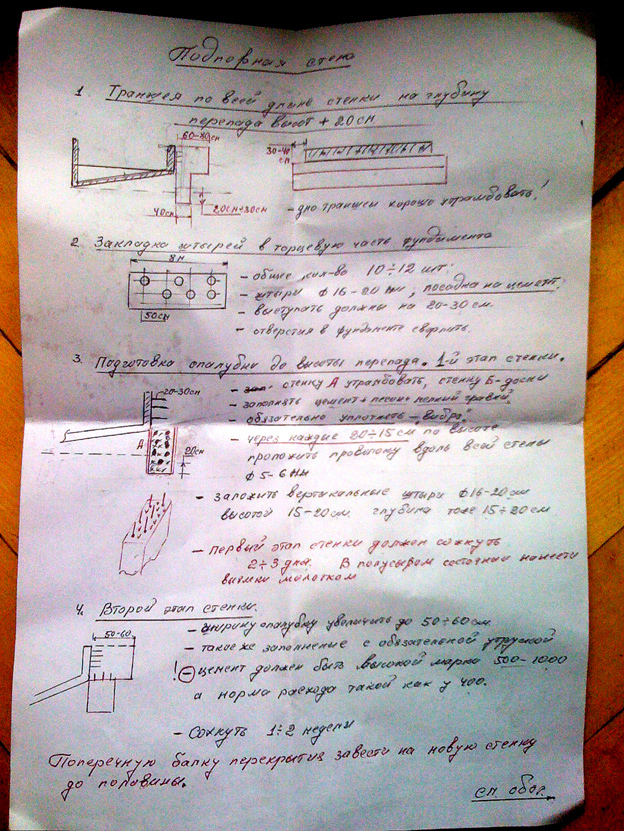 Подпорная стена
1. Траншея по всей длине стенки на глубину
перепада высот + 20см
60-80см
30-40
см
40см
20см÷30см
- дно траншеи хорошо утрамбовать!
2. Закладка штырей в торцевую часть фундамента
8м
50см
- общее кол-во 10÷12 шт.
- штыри ф 16-20 мм, посадка на цемент.
- выступать должны на 20-30 см.
- отверстия в фундаменте сверлить.
3. Подготовка опалубки до высоты перепада. 1-й этап стенки.
20-30см
А
Б
20см
- стенку А утрамбовать, стенку Б - доски
- заполнять цемент+песок+мелкий гравий
- обязательно уплотнять - вибро
- через каждые 20÷15 см по высоте
проложить проволоку вдоль всей стены
ф 5-6 мм
- заложить вертикальные штыри ф16-20см
высотой 15-20см глубина тоже 15÷20см
- Первый этап стенки должен сохнуть
2÷3 дня. В полусыром состоянии нанести
выемки молотком
4. Второй этап стенки.
50-60
- ширину опалубку увеличить до 50÷60см
- также заполнение с обязательной утруской
! - цемент должен быть высокой марки 500-1000
а норма расхода такой как у 400.
- Сохнуть 1÷2 недели
Поперечную балку перекрытия завести на новую стенку
до половины.
см. обор.